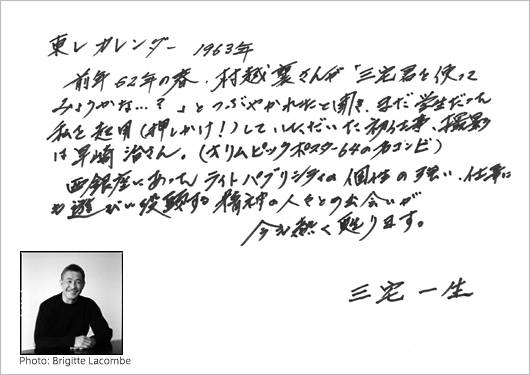 東レ カレンダー 1963年
前年62年の春、村越襄さんが「三宅君を使って
みようかな…?」とつぶやかれたと聞き、まだ学生だった
私を起用(押しかけ!)していただいた初仕事、撮影
は早崎治さん。(オリムピックポスター64の名コンビ)
西銀座にあったライトパブリシティの個性の強い、仕事に
も遊びにも 精神の人々との出会いが
今も熱く甦ります。
三宅一生
Photo: Brigitte Lacombe